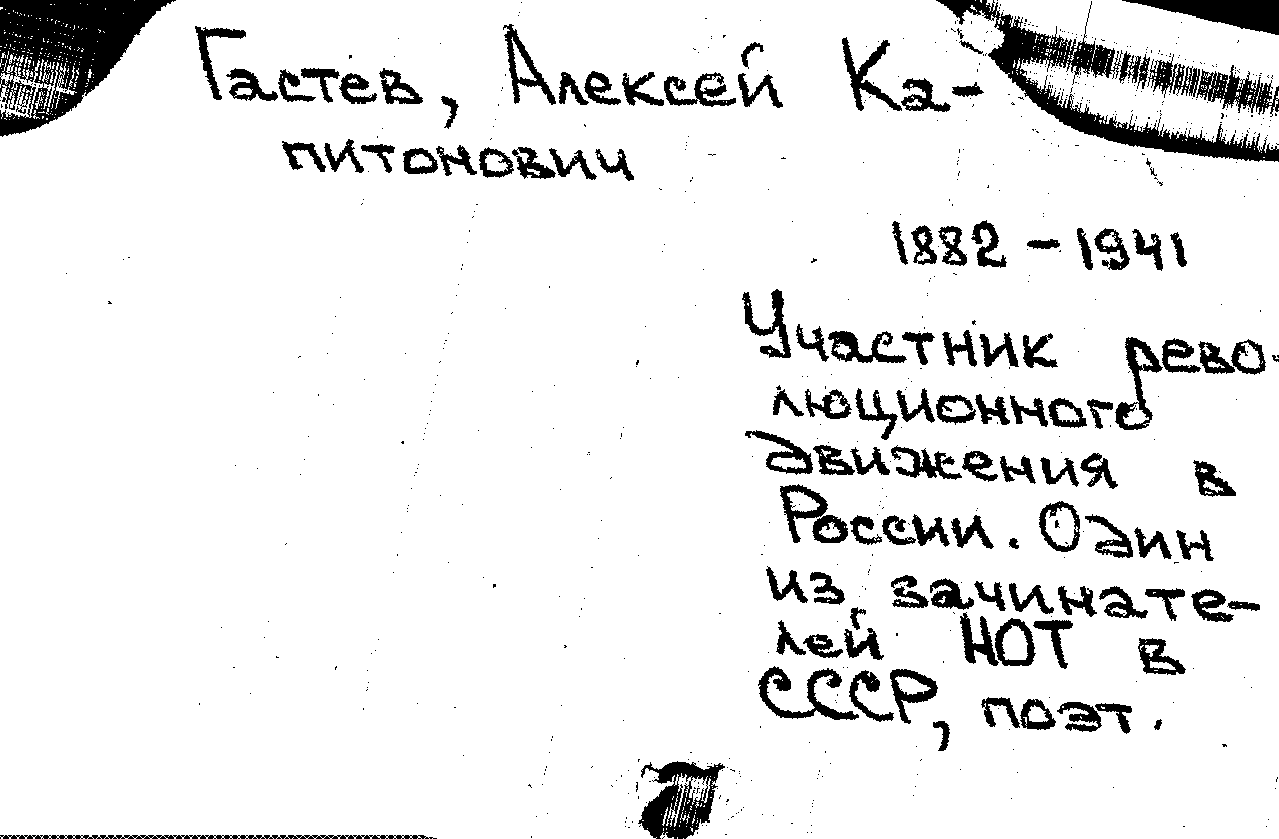 Гастев, Алексей Ка-
питонович
1882 - 1941
Участник рево-
люционного
движения в
России. Один
из зачинате-
лей НОТ в
СССР, поэт.